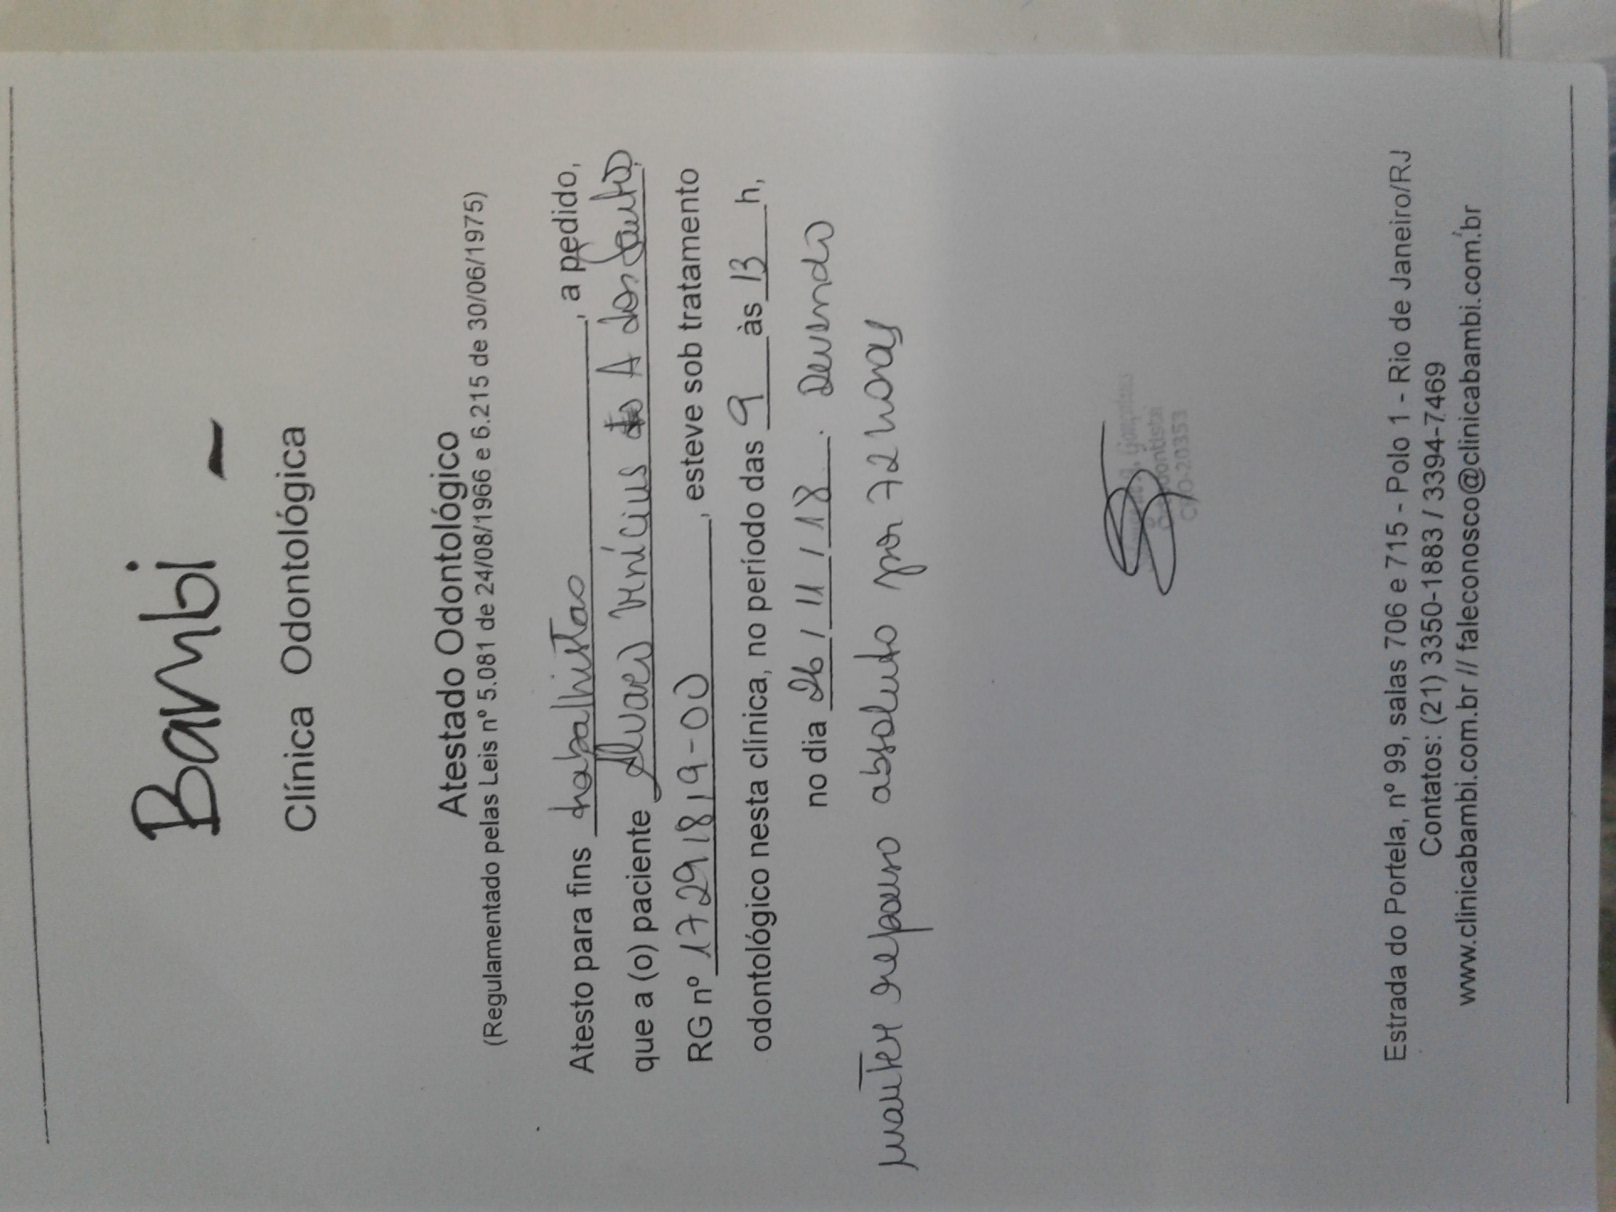 Bambi -
Clínica Odontológica
Atestado Odontológico
(Regulamentado pelas Leis nº 5.081 de 24/08/1966 e 6.215 de 30/06/1975)
Atesto para fins trabalhistas, a pedido,
que a (o) paciente Vinícius A dos Santos,
RG nº 17291819-00, esteve sob tratamento
odontológico nesta clínica, no período das 9 às 13 h,
no dia 26/11/18. Devendo
manter repouso absoluto por 72 horas
CRO-20353
Estrada do Portela, nº 99, salas 706 e 715 - Polo 1 - Rio de Janeiro/RJ
Contatos: (21) 3350-1883 / 3394-7469
www.clinicabambi.com.br // faleconosco@clinicabambi.com.br